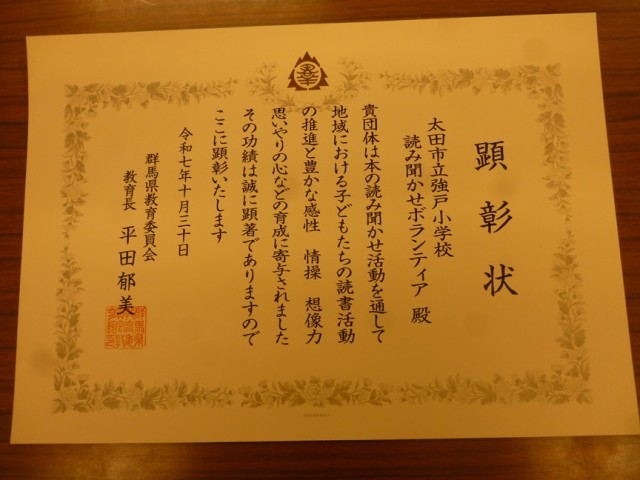 顕彰状
太田市立強戸小学校
読み聞かせボランティア 殿
貴団体は本の読み聞かせ活動を通して
地域における子どもたちの読書活動
の推進と豊かな感性 情操 想像力
思いやりの心などの育成に寄与されました
その功績は誠に顕著でありますので
ここに顕彰いたします
令和七年十月三十日
群馬県教育委員会
教育長 平田郁美